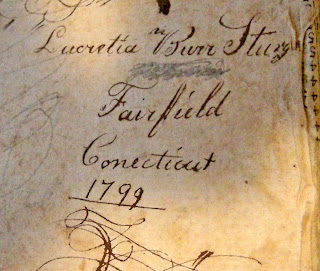 Lucretia Burr Sturg
Fairfield
Conecticut
1799